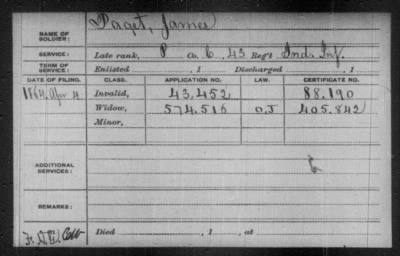 NAME OF SOLDIER: Paget, James
SERVICE: Late rank, P Co. C, 43 Reg't Ind. Inf.
TERM OF SERVICE: Enlisted , 1 Discharged , 1
DATE OF FILING. CLASS. APPLICATION NO. LAW. CERTIFICATE NO.
1864, Apr 4 Invalid, 43.452 88.190
Widow, 574.516 O.J 405.842
Minor,
ADDITIONAL SERVICES:
REMARKS:
Died , 1 , at